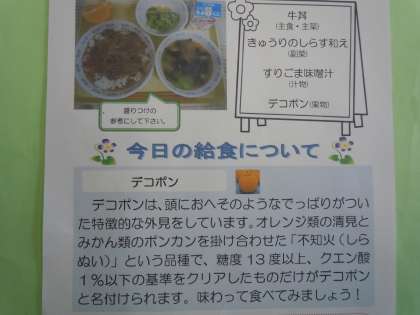 牛丼
(主食・主菜)
きゅうりのしらす和え
(副菜)
すりごま味噌汁
(汁物)
デコポン(果物)
盛りつけの
参考にして下さい。
今日の給食について
デコポン
デコポンは、頭におへそのようなでっぱりがつい
た特徴的な外見をしています。オレンジ類の清見と
みかん類のポンカンを掛け合わせた「不知火(しら
ぬい)」という品種で、糖度13度以上、クエン酸
1%以下の基準をクリアしたものだけがデコポン
と名付けられます。味わって食べてみましょう!